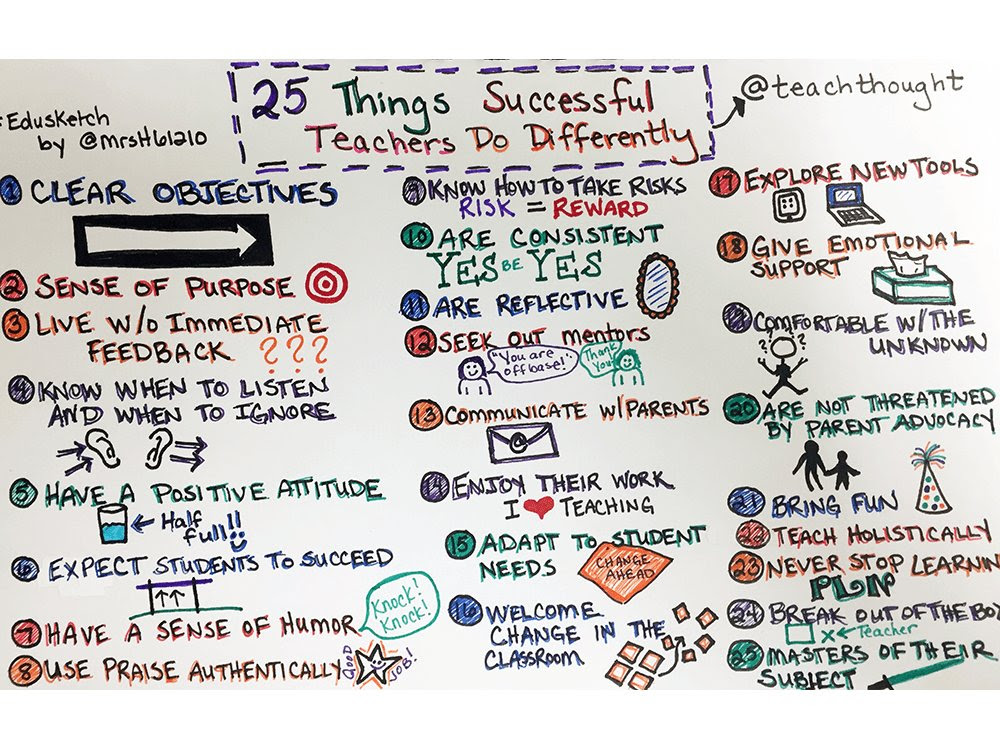 25 Things Successful
Teachers Do Differently
@teachthought
EduSketch
by @mrsH61210
1 CLEAR OBJECTIVES
2 SENSE OF PURPOSE
3 LIVE W/O IMMEDIATE
FEEDBACK ???
4 KNOW WHEN TO LISTEN
AND WHEN TO IGNORE
5 HAVE A POSITIVE ATTITUDE
Half
full!!
6 EXPECT STUDENTS TO SUCCEED
7 HAVE A SENSE OF HUMOR
Knock!
Knock!
8 USE PRAISE AUTHENTICALLY
GOOD JOB!
9 KNOW HOW TO TAKE RISKS
RISK = REWARD
10 ARE CONSISTENT
YES BE YES
11 ARE REFLECTIVE
12 SEEK OUT mentors
"You are
off base!"
Thank
you!
13 COMMUNICATE W/PARENTS
@
14 ENJOY THEIR WORK
I ❤ TEACHING
15 ADAPT TO STUDENT
NEEDS
CHANGE
AHEAD
16 WELCOME
CHANGE IN THE
CLASSROOM
17 EXPLORE NEW TOOLS
18 GIVE EMOTIONAL
SUPPORT
19 COMFORTABLE W/THE
UNKNOWN
? ?
? ?
20 ARE NOT THREATENED
BY PARENT ADVOCACY
21 BRING FUN
22 TEACH HOLISTICALLY
23 NEVER STOP LEARNIN
24 BREAK OUT OF THE BO
X ← Teacher
25 MASTERS OF THEIR
SUBJECT